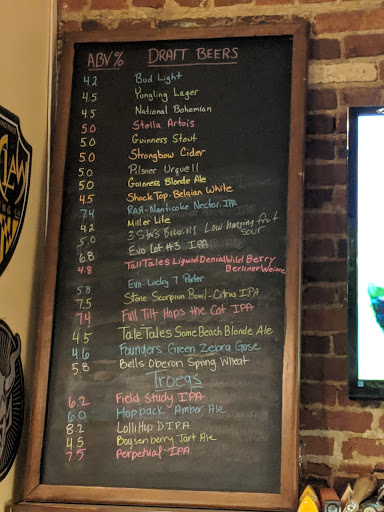 ABV% DRAFT BEERS
4.2 Bud Light
4.5 Yungling Lager
4.5 National Bohemian
5.0 Stella Artois
5.0 Guinness Stout
5.0 Strongbow Cider
5.0 Pilsner Urquell
5.0 Guinness Blonde Ale
4.5 Shock Top Belgian White
7.4 RAR-Nanticoke Nectar IPA
4.2 Miller Lite
5.0 3 Stars Brewing Low hanging fruit
sour
6.8 Evo Lot #3 IPA
4.8 Tall Tales Liquid Denial Wild Berry
Berliner Weisse
5.8 Evo-Lucky 7 Porter
7.5 Stone Scorpion Bowl-Citrus IPA
7.4 Full Tilt Hops the Cat IPA
4.5 Tale Tales Some Beach Blonde Ale
4.6 Founders Green Zebra Gose
5.8 Bells Oberon Spring Wheat
Troegs
6.2 Field Study IPA
6.0 Hopback Amber Ale
8.2 LolliHop DIPA
4.5 Boysenberry Tart Ale
7.5 Perpetual IPA